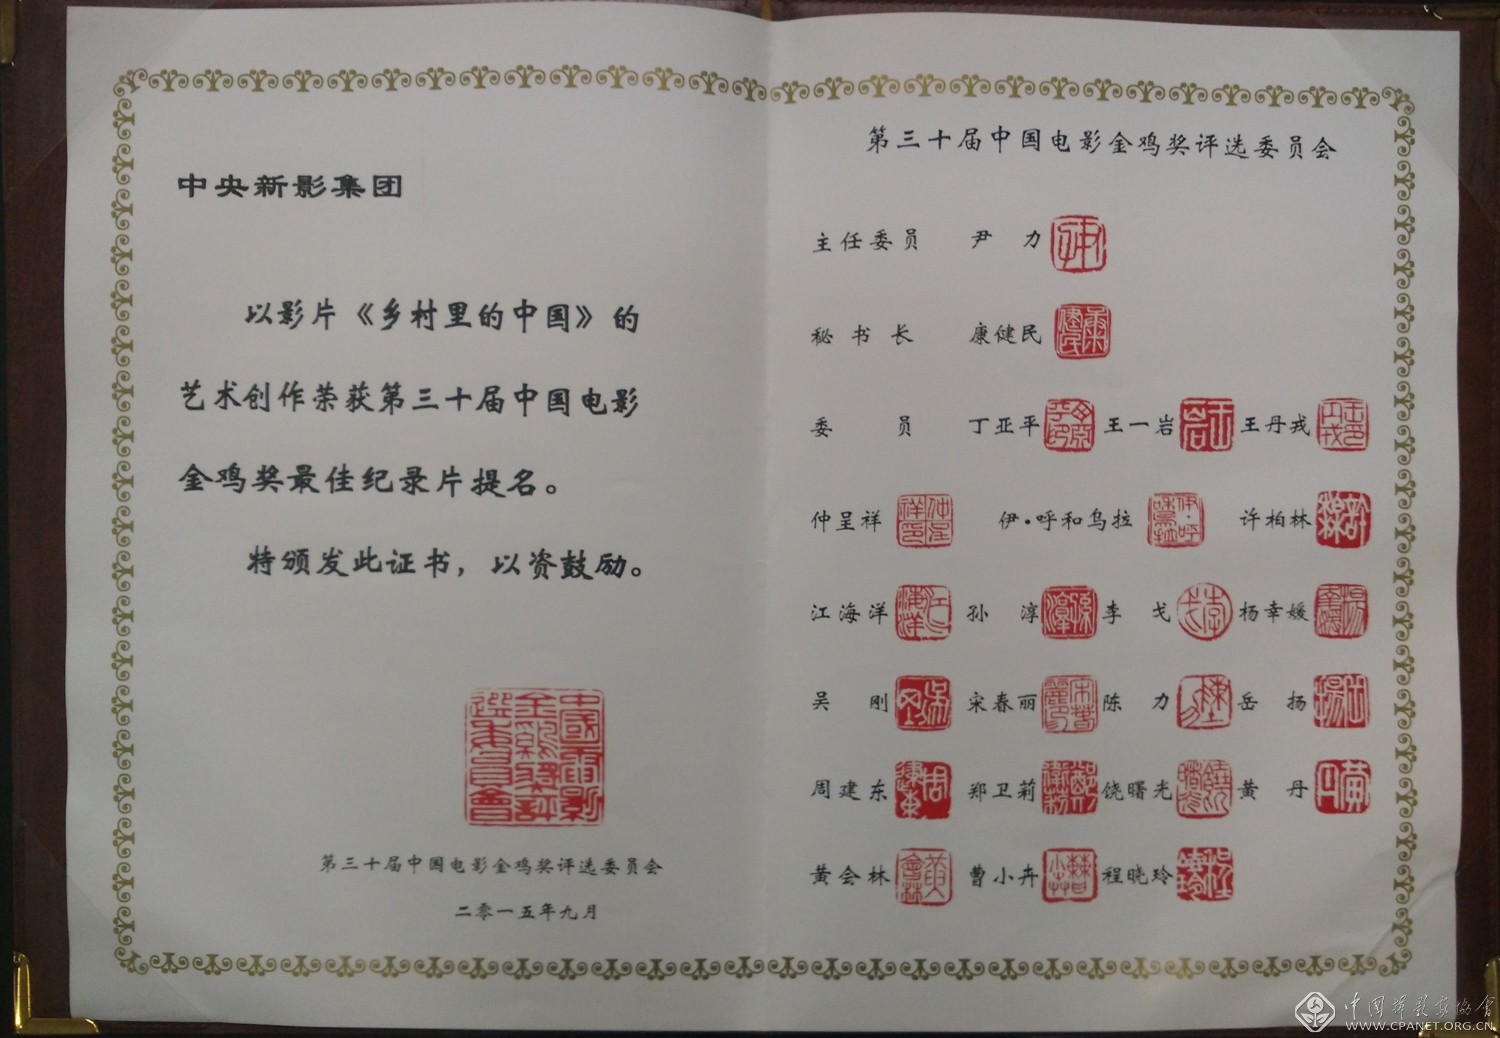 中央新影集团
以影片《乡村里的中国》的
艺术创作荣获第三十届中国电影
金鸡奖最佳纪录片提名。
特颁发此证书，以资鼓励。
中國電影
金鷄獎評
選委員會
第三十届中国电影金鸡奖评选委员会
二零一五年九月
第三十届中国电影金鸡奖评选委员会
主任委员 尹力
秘书长 康健民
委员 丁亚平 王一岩 王丹戎
仲呈祥 伊·呼和乌拉 许柏林
江海洋 孙淳 李戈 杨幸媛
吴刚 宋春丽 陈力 岳扬
周建东 郑卫莉 饶曙光 黄丹
黄会林 曹小卉 程晓玲
中国摄影家协会
WWW.CPANET.ORG.CN